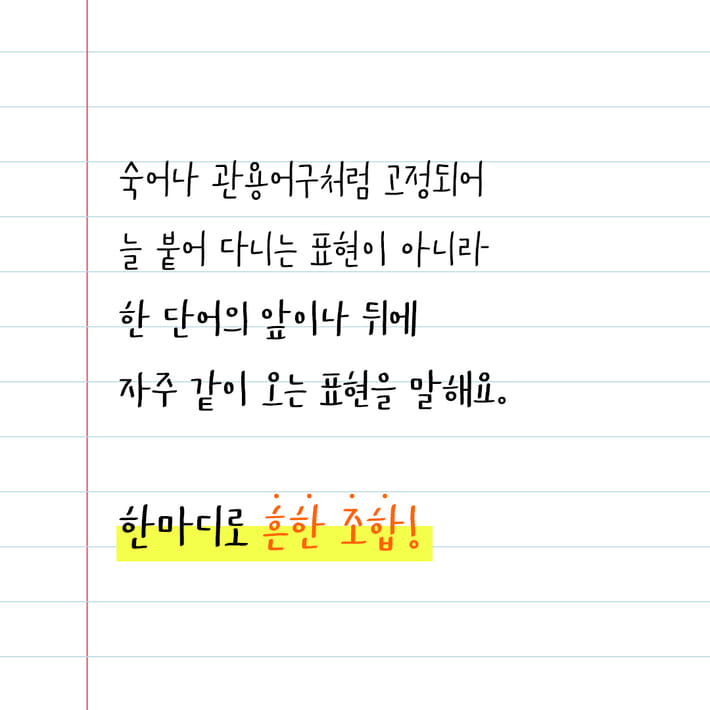 숙어나 관용어구처럼 고정되어
늘 붙어 다니는 표현이 아니라
한 단어의 앞이나 뒤에
자주 같이 오는 표현을 말해요.
한마디로 흔한 조합!